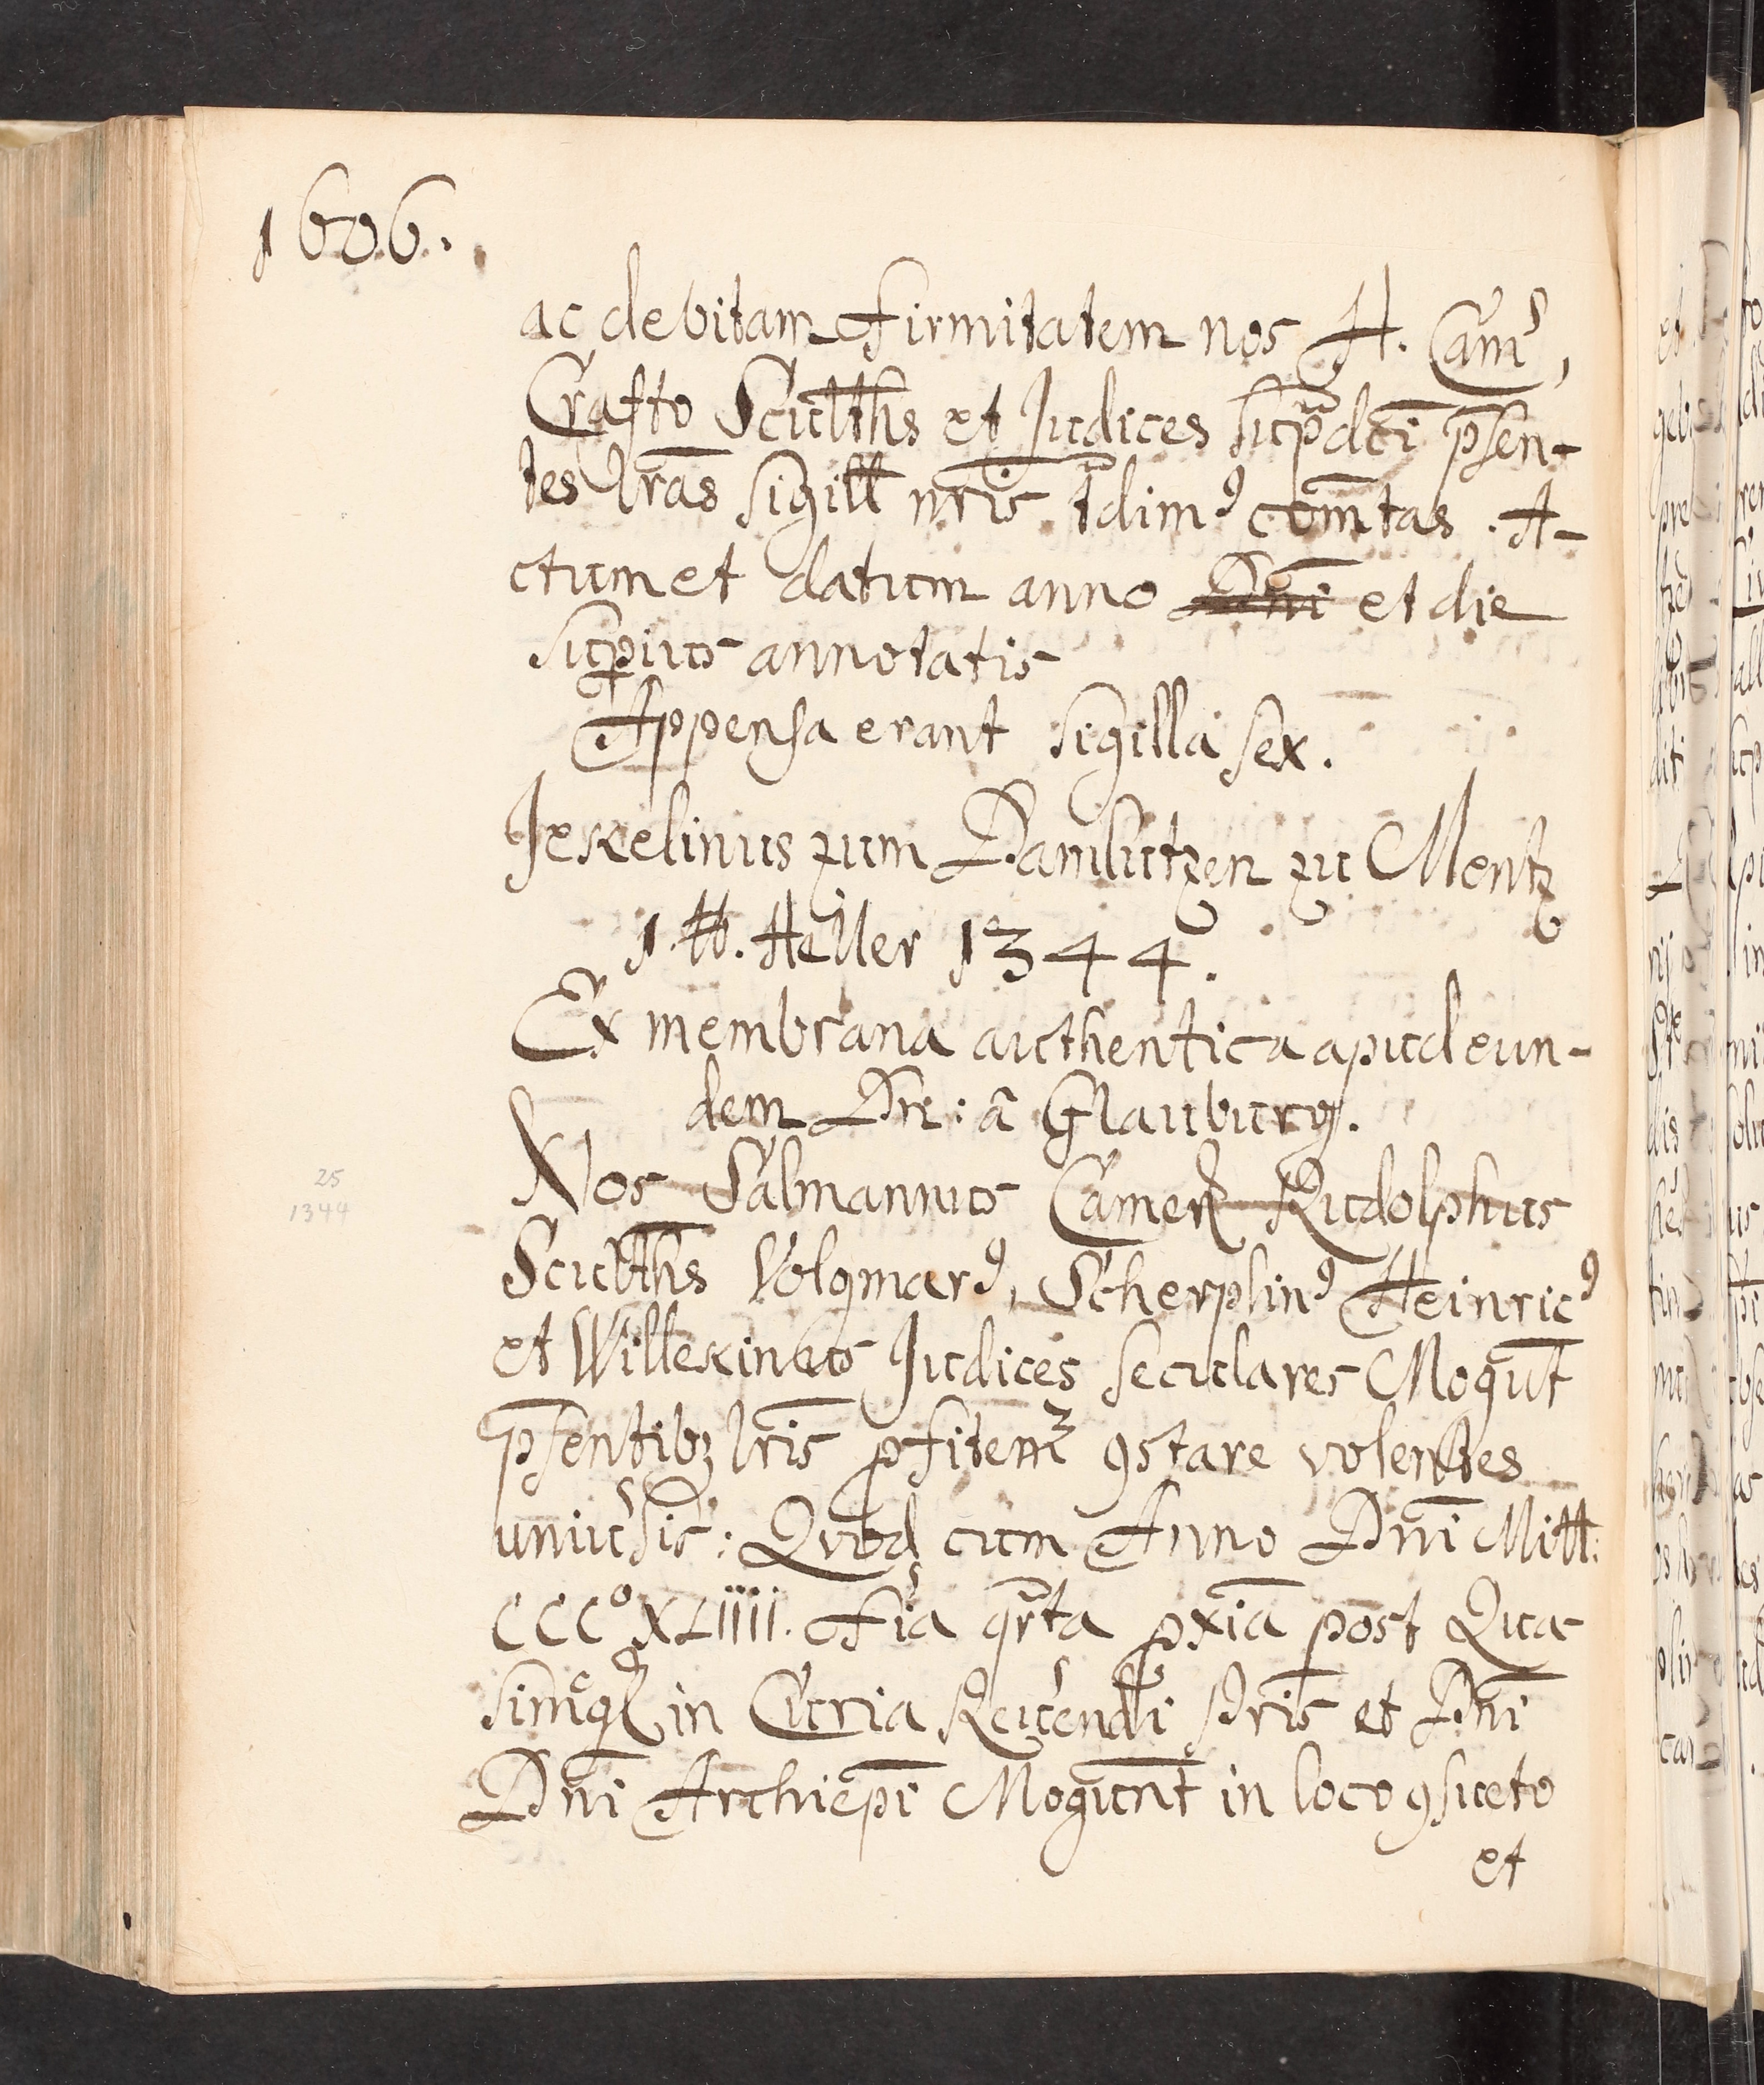 1606.
ac debitam firmitatem nos H. Cam̃,
Crafto Scult̅hs et Judices sup̃dc̅i p̅sen-
tes l̅ras sigill n̅ris t̃dimꝰ com̅tas. A-
ctum et datum anno D̅ni et die
suꝑius annotatis
Appensa erant sigilla sex.
Jekelinus zum Damlutzen zu Mentz
1. ℔. Heller 1344.
Ex membrana authentica apud eun-
dem Dn: à Glauburg.
25
1344
Nos Salmannus Camer̃ Rudolphus
Scult̅hs Volgmarꝰ, Scherplinꝰ Heinricꝰ
et Willekinus Judices seculares Mogu̅t
p̅sentibꝫ l̅ris ꝓfitem̃ ꝯstare volentes
uniu̓sis: Quod cum Anno D̅ni Mill:
CCCº XLIIII. f̓ia qr̃ta ꝓxi̅a post Qua-
simo̊g̃ in Curia Reu̓endi P̅ris et D̅ni
D̅ni Archiep̅i Mogunt̅ in loco ꝯsueto
et